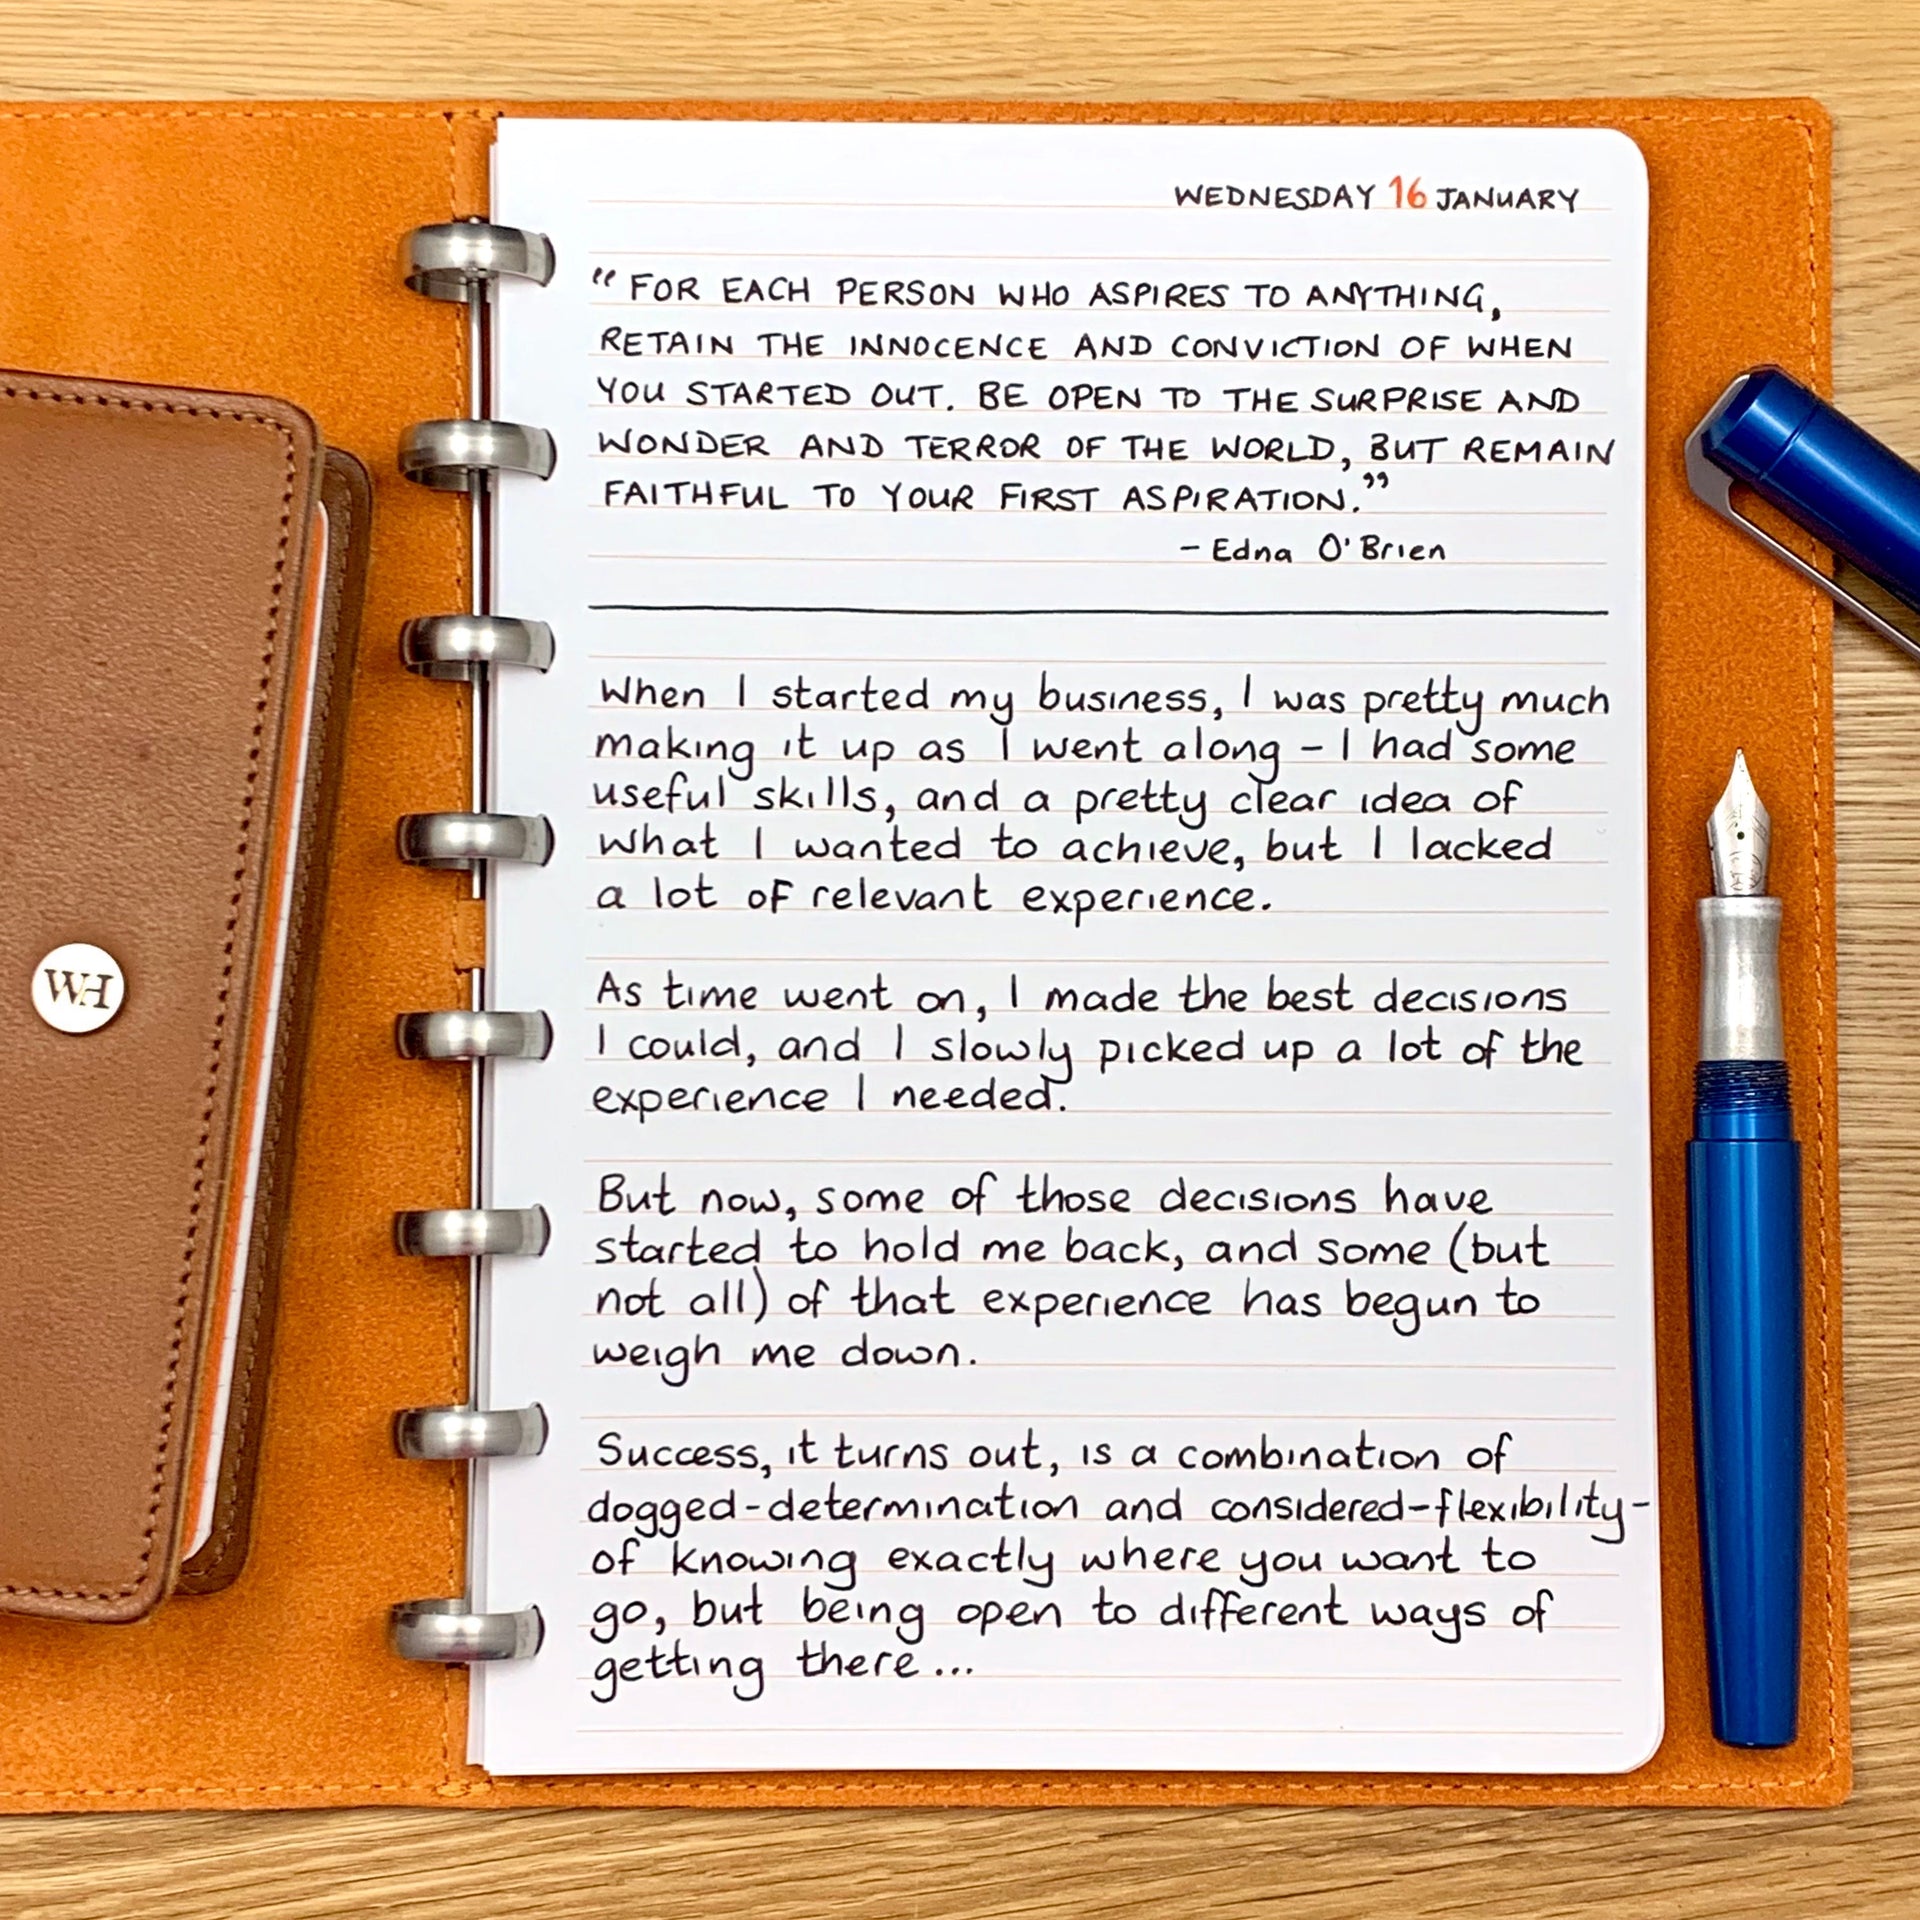 WEDNESDAY 16 JANUARY
“FOR EACH PERSON WHO ASPIRES TO ANYTHING,
RETAIN THE INNOCENCE AND CONVICTION OF WHEN
YOU STARTED OUT. BE OPEN TO THE SURPRISE AND
WONDER AND TERROR OF THE WORLD, BUT REMAIN
FAITHFUL TO YOUR FIRST ASPIRATION.”
- Edna O'Brien
When I started my business, I was pretty much
making it up as I went along - I had some
useful skills, and a pretty clear idea of
what I wanted to achieve, but I lacked
a lot of relevant experience.
As time went on, I made the best decisions
I could, and I slowly picked up a lot of the
experience I needed.
But now, some of those decisions have
started to hold me back, and some (but
not all) of that experience has begun to
weigh me down.
Success, it turns out, is a combination of
dogged-determination and considered-flexibility-
of knowing exactly where you want to
go, but being open to different ways of
getting there...
WH